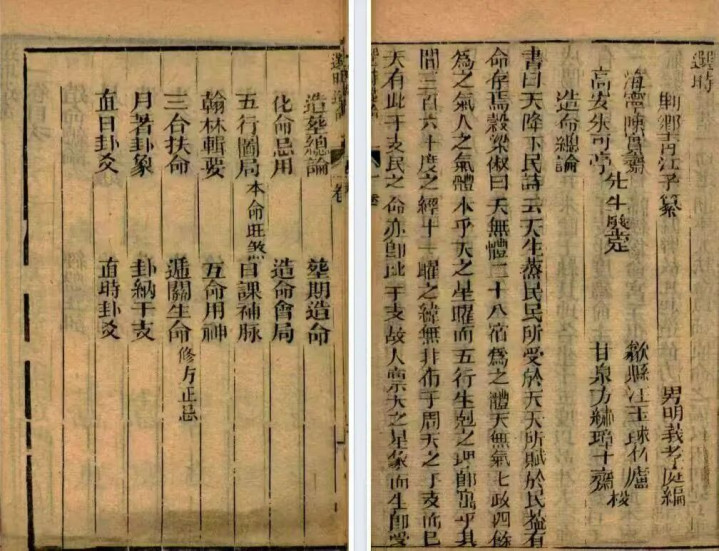 造葬總論 葬期造命
化命忌用 造命會局
五行關局 本命旺煞 日課補脉
翰林輯要 互命用神
三台扶命 遁關生命 修方正忌
月著卦象 卦納干支
直日卦爻 直時卦爻
選時
鄉青江子纂 男明義孝庭編
海寧陳實齋 歙縣江玉球竹廬
高安朱可亭 先生鑒定 甘泉方繡璋十齋梭
造命總論
書曰天降下民詩云天生蒸民民所受於天天所賦於民葢有
命存焉穀梁俶曰天無體二十八宿為之體天無氣七政四餘
為之氣人之氣體本乎天之星曜而五行生剋之理即寓乎其
間三百六十度之經十一曜之緯無非布于周天之干支而已
天有此干支民之命亦即此干支故人禀天之星象而生即受